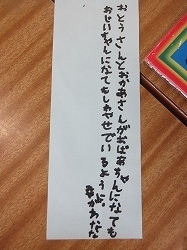 おとうさんとおかあさんがおばあちゃんになても
おじいちゃんになてもしあやせでいるように。